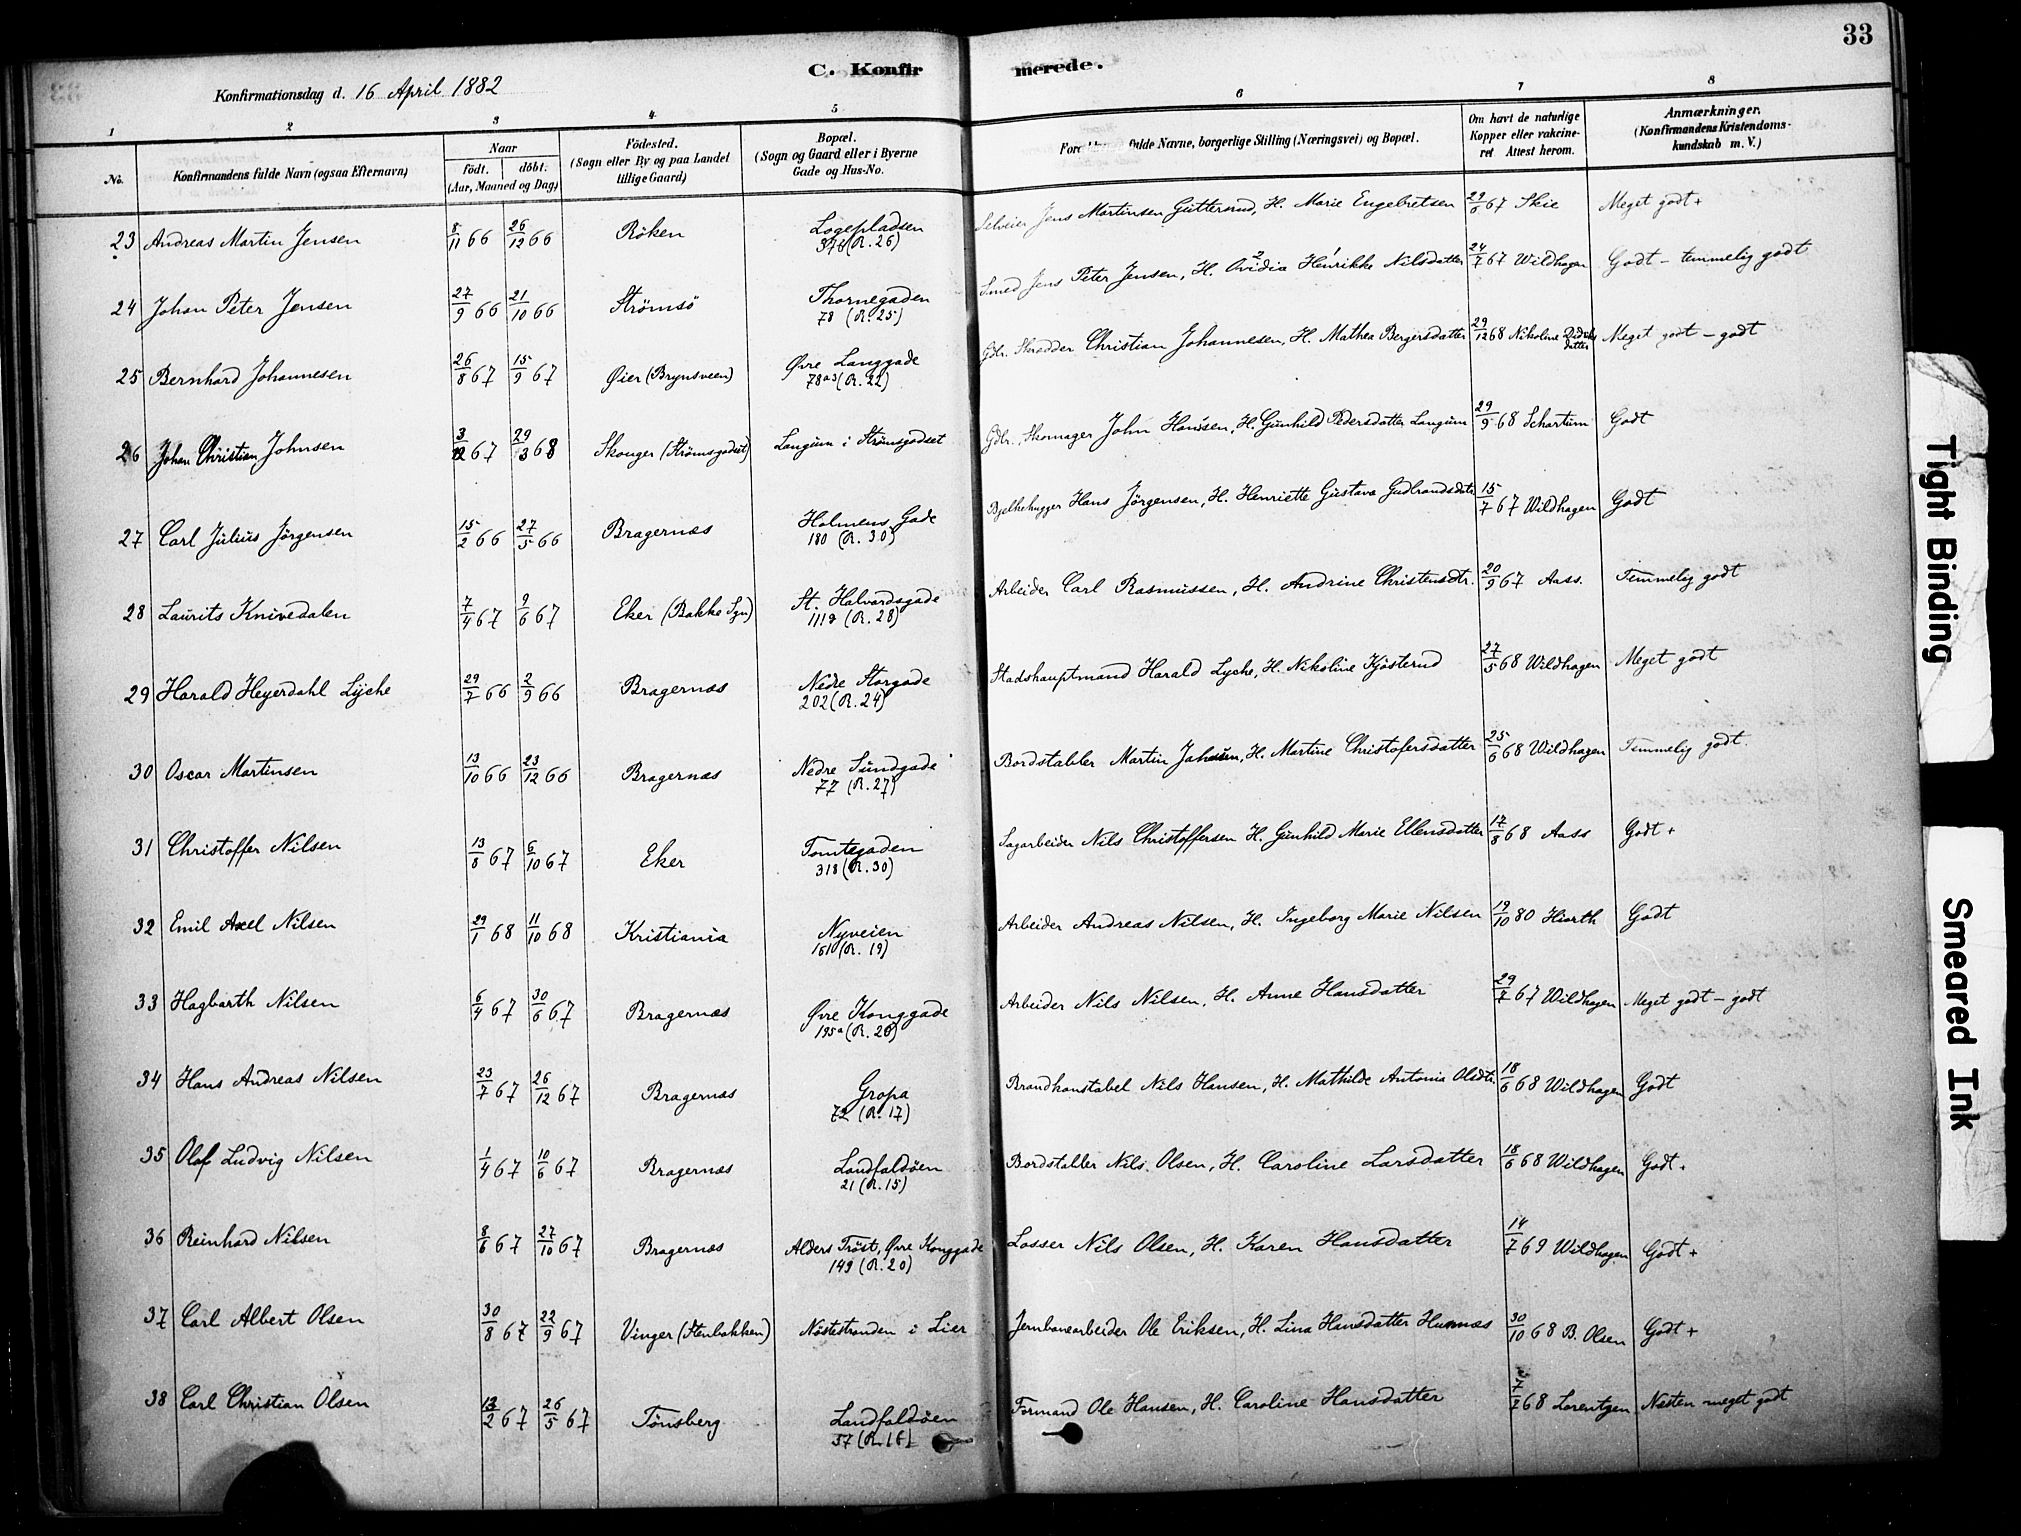 33
C. Konfirmerede.
Konfirmationsdag d. 16 April 1882
1 2 3 4 5 6 7 8
No. Konfirmandens fulde Navn (ogsaa Efternavn) Naar födt. döbt. (Aar, Maaned og Dag) Födested. (Sogn eller By og paa Landet tillige Gaard) Bopæl. (Sogn og Gaard eller i Byerne Gade og Hus-No. fulde Navne, borgerlige Stilling (Næringsvei) og Bopæl. Om havt de naturlige Kopper eller vakcineret Attest herom. Anmærkninger. (Konfirmandens Kristendomskundskab m. V.)
23 Andreas Martin Jensen 8/11 66 26/12 66 Röken Logepladsen 376 (R. 26) Selveier Jens Martinsen Guttersrud, H. Marie Engebretsen 29/6 67 Skie Meget godt +
24 Johan Peter Jensen 27/9 66 21/10 66 Strömsö Thornegaden 78 (R. 25) Smed Jens Peter Jensen, H. Ovidia Henrikke Nilsdatter 24/7 67 Wildhagen Godt - temmelig godt
25 Bernhard Johannesen 26/8 67 15/9 67 Øier (Brynsveen) Øvre Langgade 78a3 (R. 22) Gdr. Skrædder Christian Johannesen, H. Mathea Bergersdatter 29/12 68 Nikoline Didriksdatter Meget godt - godt
26 Johan Christian Johnsen 3/12 67 29/3 68 Skonger (Strömsgodset) Langum i Strömsgodset Gdr. Skomager John Hansen, H. Gunhild Pedersdatter Langum 29/9 68 Schartum Godt
27 Carl Julius Jörgensen 15/2 66 27/5 66 Bragernæs Holmens Gade 180 (R. 30) Bjelkehugger Hans Jörgensen, H. Henriette Gustava Gudbrandsdatr. 15/7 67 Wildhagen Godt
28 Laurits Knivedalen 7/4 67 9/6 67 Eker (Bakke Sgn) St. Halvardsgade 111a (R. 28) Arbeider Carl Rasmussen, H. Andrine Christensdtr. 20/9 67 Aass. Temmelig godt
29 Harald Heyerdahl Lyche 29/7 66 2/9 66 Bragernæs Nedre Storgade 202 (R. 24) Stadshauptmand Harald Lyche, H. Nikoline Kjösterud 27/5 68 Wildhagen Meget godt
30 Oscar Martinsen 13/10 66 23/12 66 Bragernæs Nedre Sundgade 77 (R. 27) Bordstabler Martin Johnsen, H. Martine Christofersdatter 25/6 68 Wildhagen Temmelig godt.
31 Christoffer Nilsen 13/8 67 6/10 67 Eker Tomtegaden 318 (R. 30) Sagarbeider Nils Christoffersen H. Gunhild Marie Ellensdatter 17/8 68 Aass Godt +
32 Emil Axel Nilsen 29/1 68 11/10 68 Kristiania Nyveien 161 (R. 19) Arbeider Andreas Nilsen, H. Ingeborg Marie Nilsen 19/10 80 Hiorth Godt
33 Hagbarth Nilsen 6/4 67 30/6 67 Bragernæs Øvre Konggade 195a (R. 20) Arbeider Nils Nilsen, H. Anne Hansdatter 29/7 67 Wildhagen Meget godt - godt
34 Hans Andreas Nilsen 23/7 67 26/12 67 Bragernæs Gropa 72 (R. 17) Brandkonstabel Nils Hansen, H. Mathilde Antonia Olsdtr. 18/6 68 Wildhagen Godt
35 Olaf Ludvig Nilsen 1/4 67 10/6 67 Bragernæs Landfaldöen 21 (R. 15) Bordstabler Nils Olsen, H. Caroline Larsdatter 18/6 68 Wildhagen Godt +
36 Reinhard Nilsen 8/6 67 27/10 67 Bragernæs Alders Tröst, Øvre Konggade 149 (R. 20) Losser Nils Olsen, H. Karen Hansdatter 14/7 69 Wildhagen Godt +
37 Carl Albert Olsen 30/8 67 22/9 67 Vinger (Stenbakken) Nöstestranden i Lier Jernbanearbeider Ole Eriksen, H. Lina Hansdatter Humnæs 30/10 68 B. Olsen Godt +
38 Carl Christian Olsen 13/2 67 26/5 67 Tönsberg Landfaldöen 37 (R. 16) Formand Ole Hansen, H. Caroline Hansdatter 7 68 Lorentzen Næsten meget godt
Tight Binding
Smeared Ink